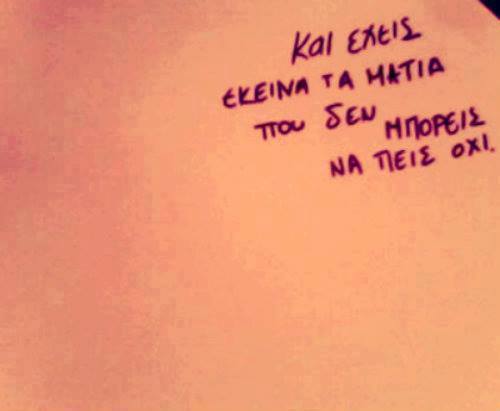 Και εχεις
εκεινα τα ματια
που δεν μπορεις
να πεις οχι.